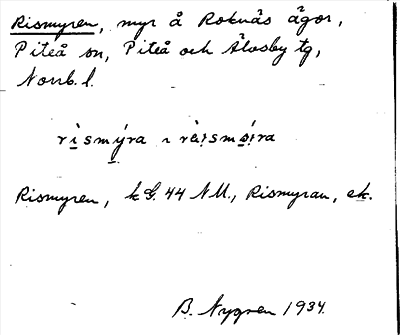 Rismyren, myr å Roknäs ägor,
Piteå sn, Piteå och Älvsby tg,
Norrb. l.
Rismyren, k G. 44 NU., Rismyran, ek.
B. Nygren 1934.